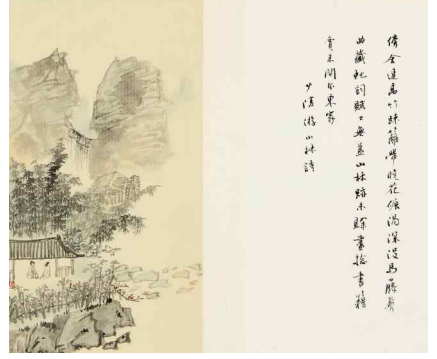 傍舍連高竹疎籬帶晚花碾渦深沒馬藤蔓
曲藏虵詞賦工無益山林跡未賖盡捻書籍
賣來問尔東家
少陵游山林詩